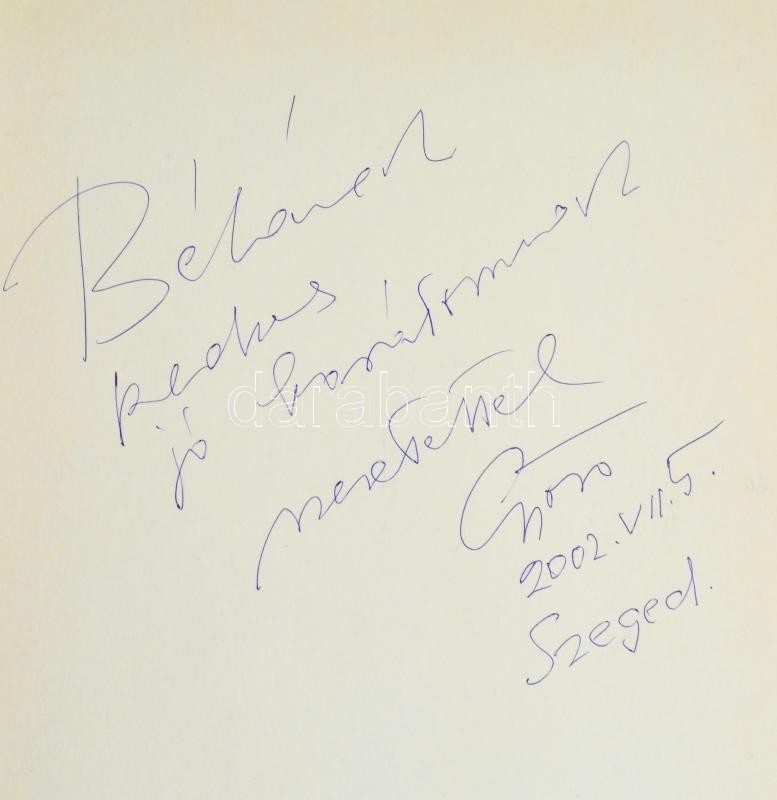 Bélának
kedves
jó barátomnak
szeretettel
2002. VII. 5.
Szeged.
darabanth